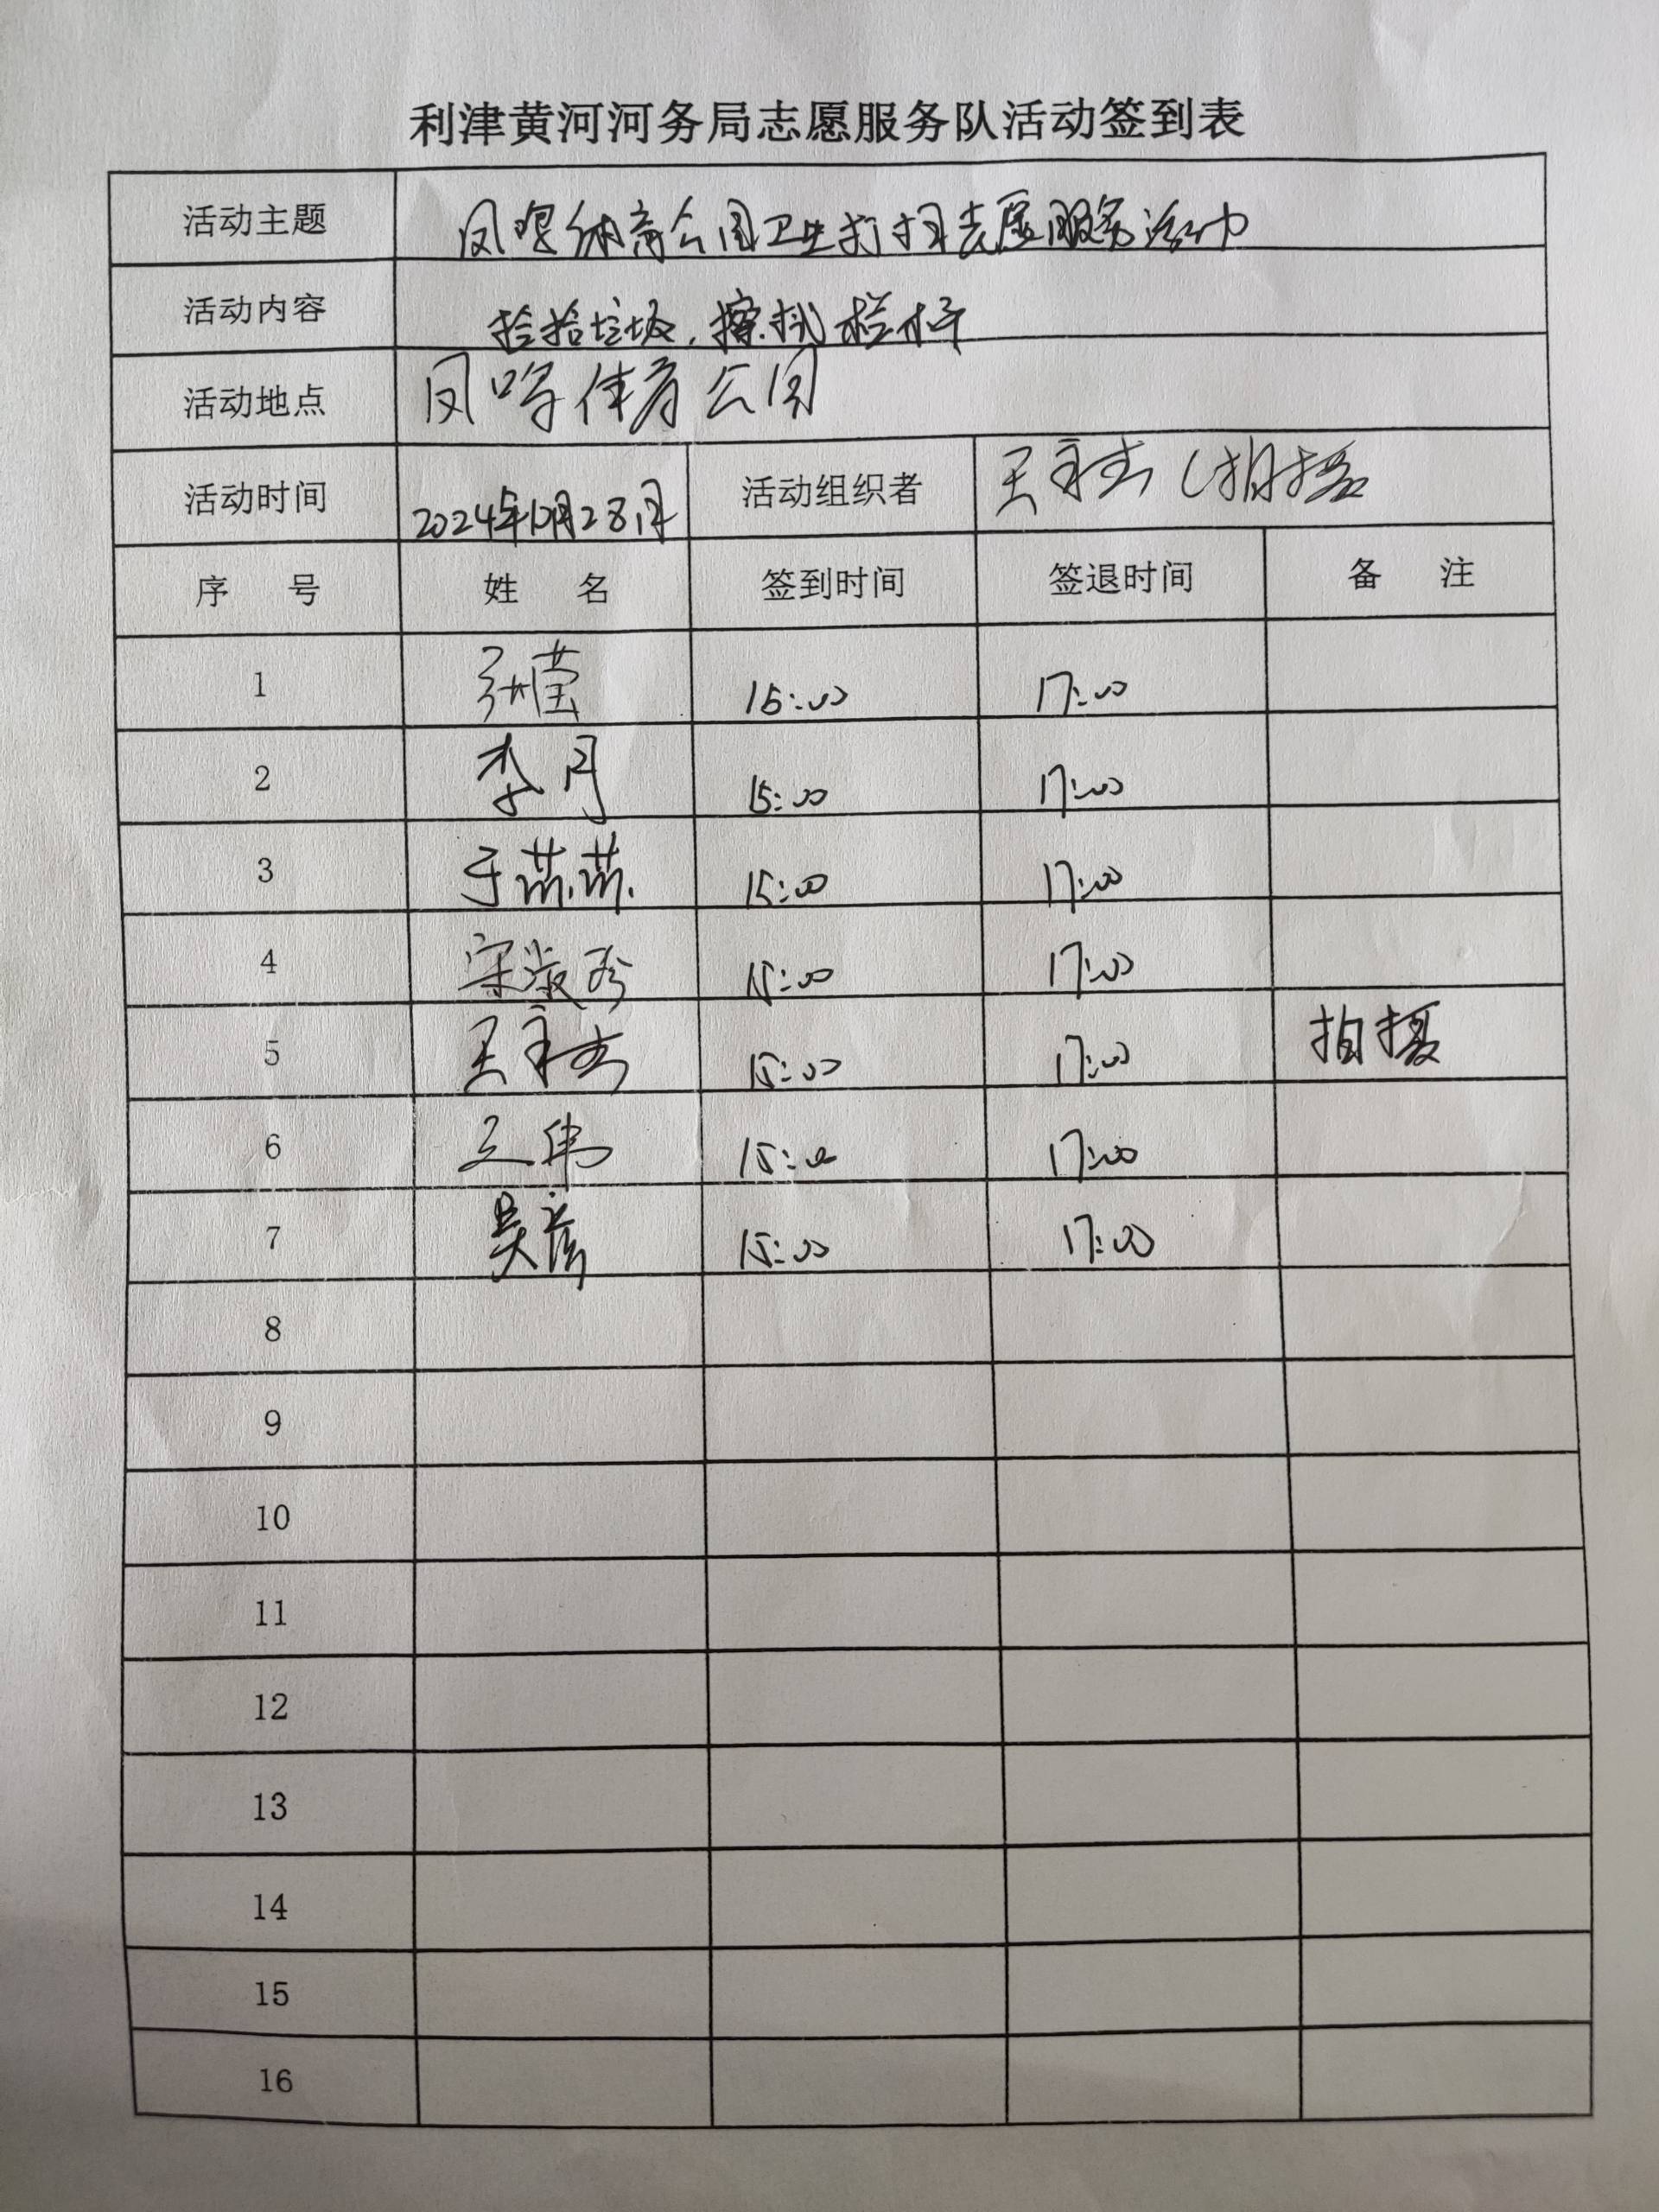 利津黄河河务局志愿服务队活动签到表
活动主题 凤凰体育公园卫生打扫志愿服务活动
活动内容 捡拾垃圾，擦拭栏杆
活动地点 凤鸣体育公园
活动时间 2024年10月28日 活动组织者 (拍摄
序 号 姓 名 签到时间 签退时间 备 注
1 张莹 15:00 17:00
2 李月 15:00 17:00
3 于燕燕 15:00 17:00
4 宋淑珍 15:00 17:00
5 15:00 17:00 拍摄
6 王伟 15:00 17:00
7 吴彦 15:00 17:00
8
9
10
11
12
13
14
15
16